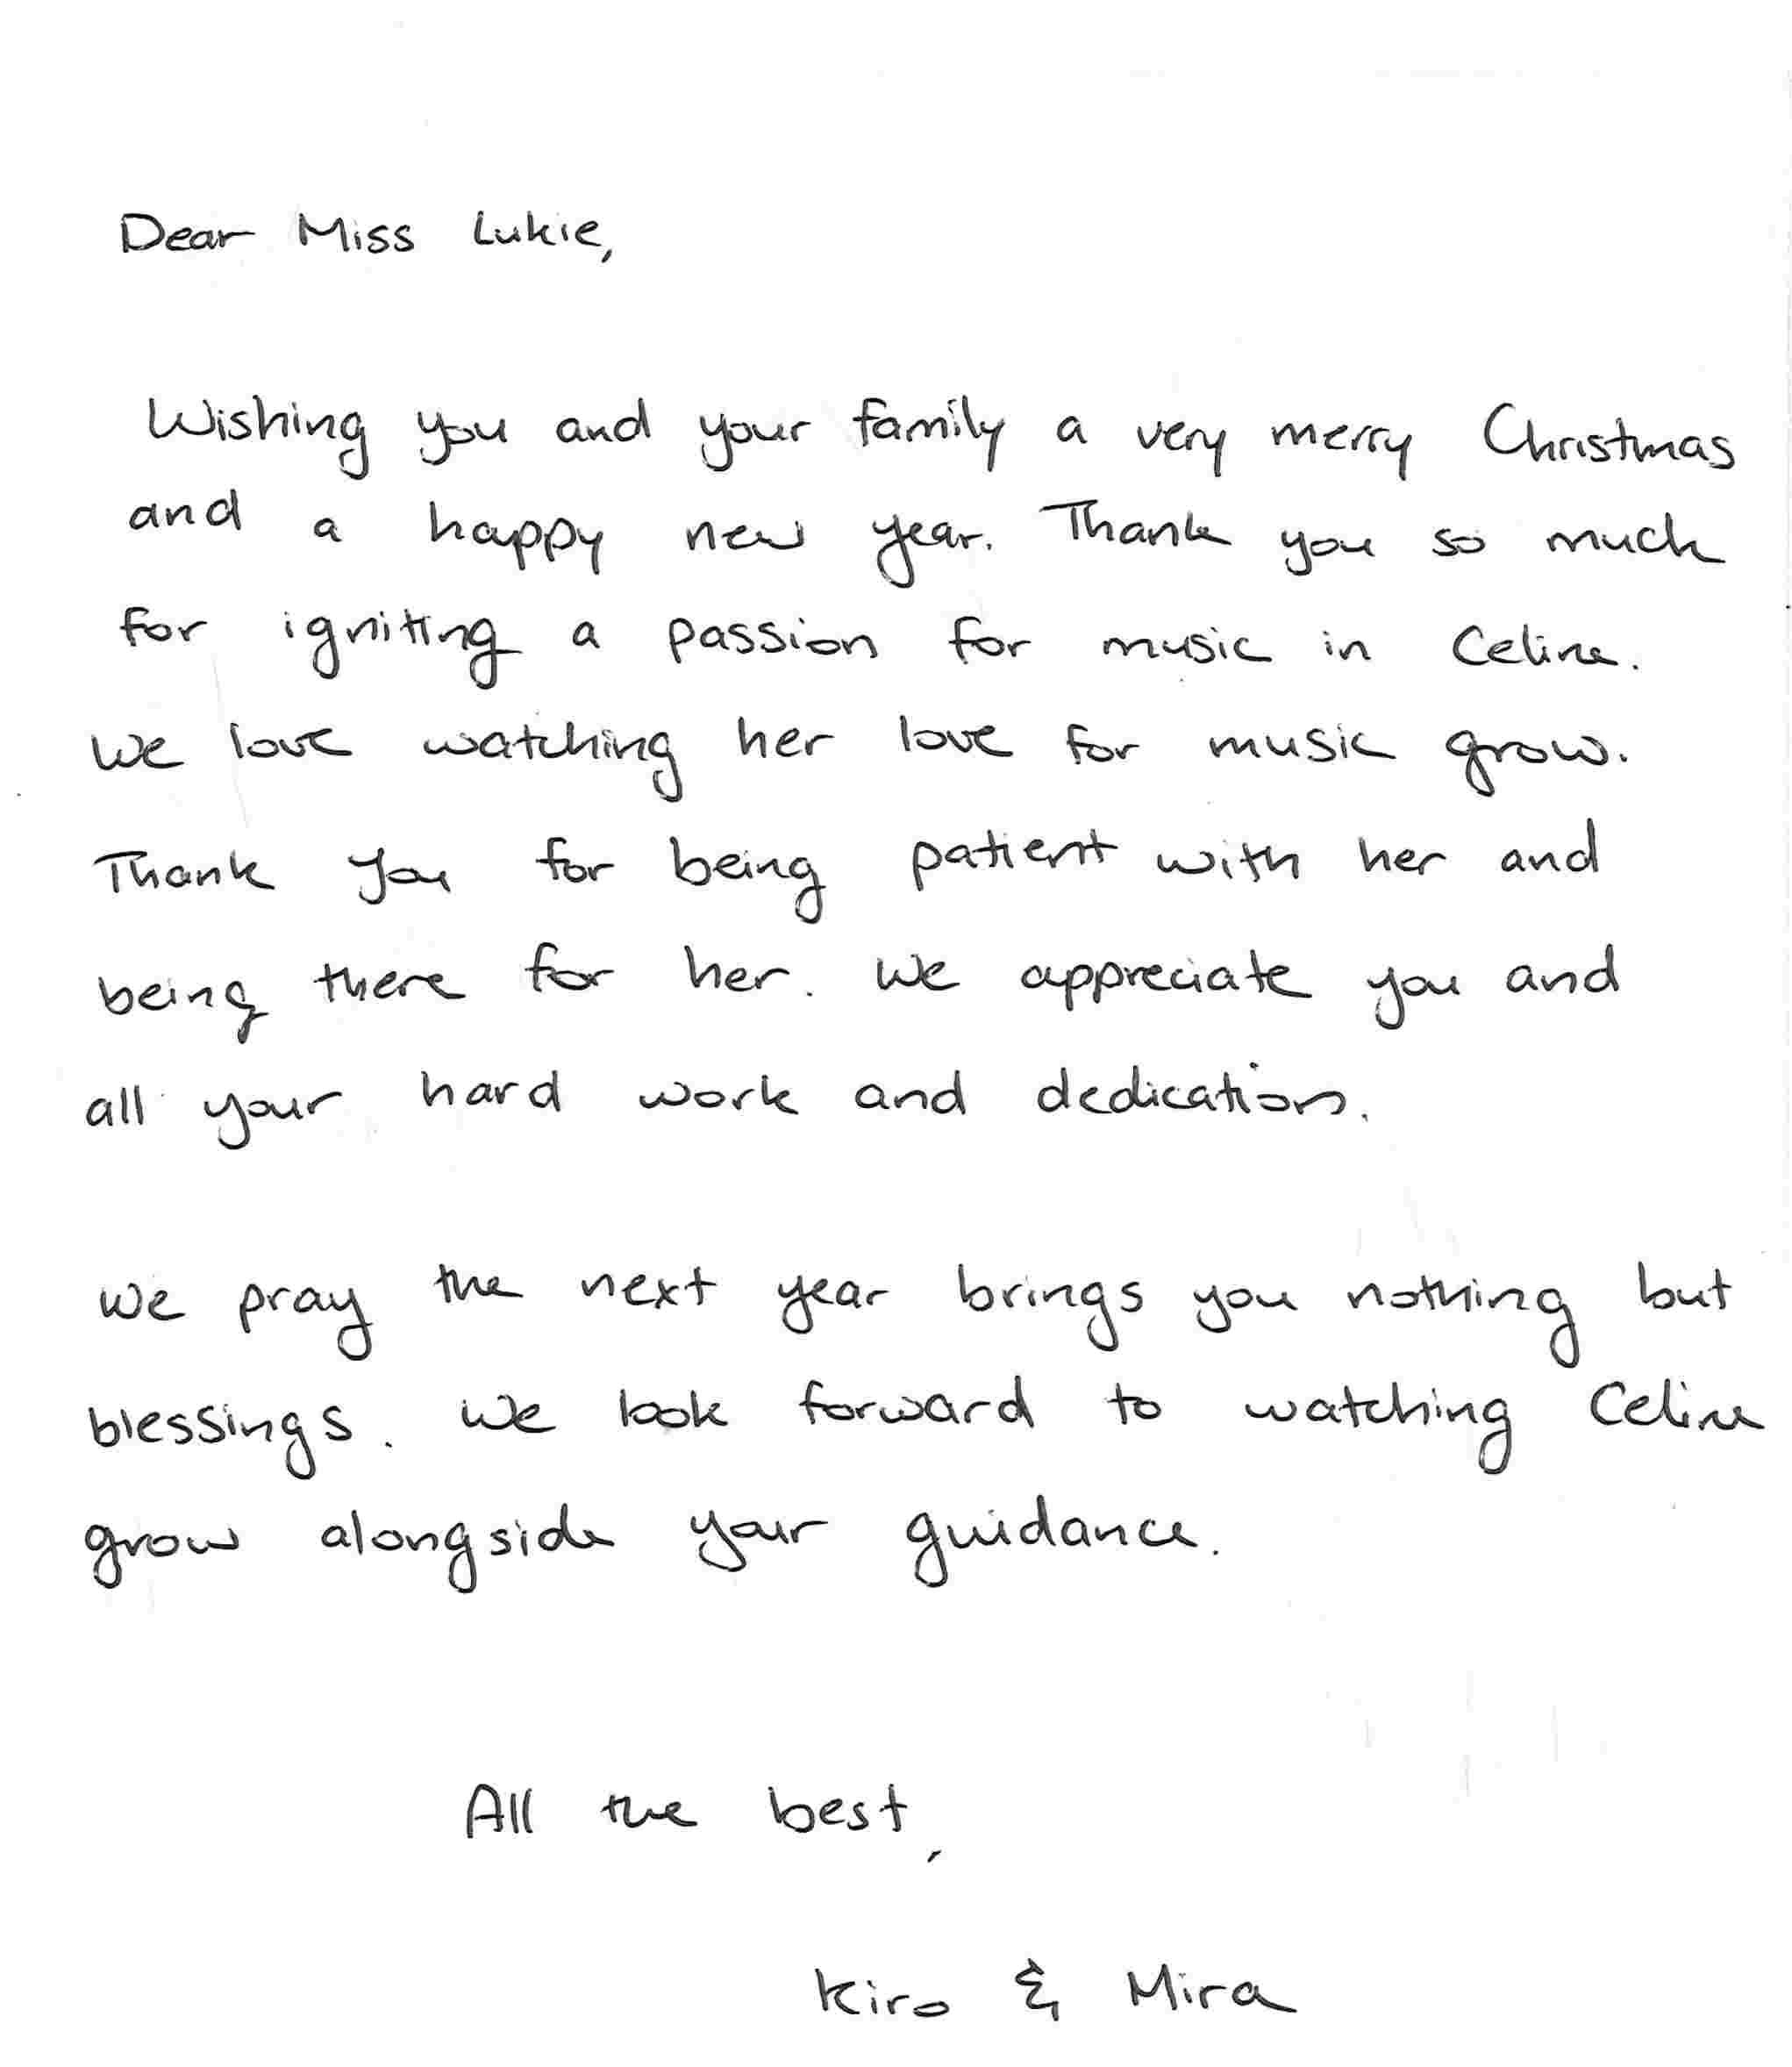 Dear Miss Lukie,
Wishing you and your family a very merry Christmas
and a happy new year. Thank you so much
for igniting a passion for music in Celine.
We love watching her love for music grow.
Thank you for being patient with her and
being there for her. We appreciate you and
all your hard work and dedication.
We pray the next year brings you nothing but
blessings. We look forward to watching Celine
grow alongside your guidance.
All the best,
Kiro & Mira